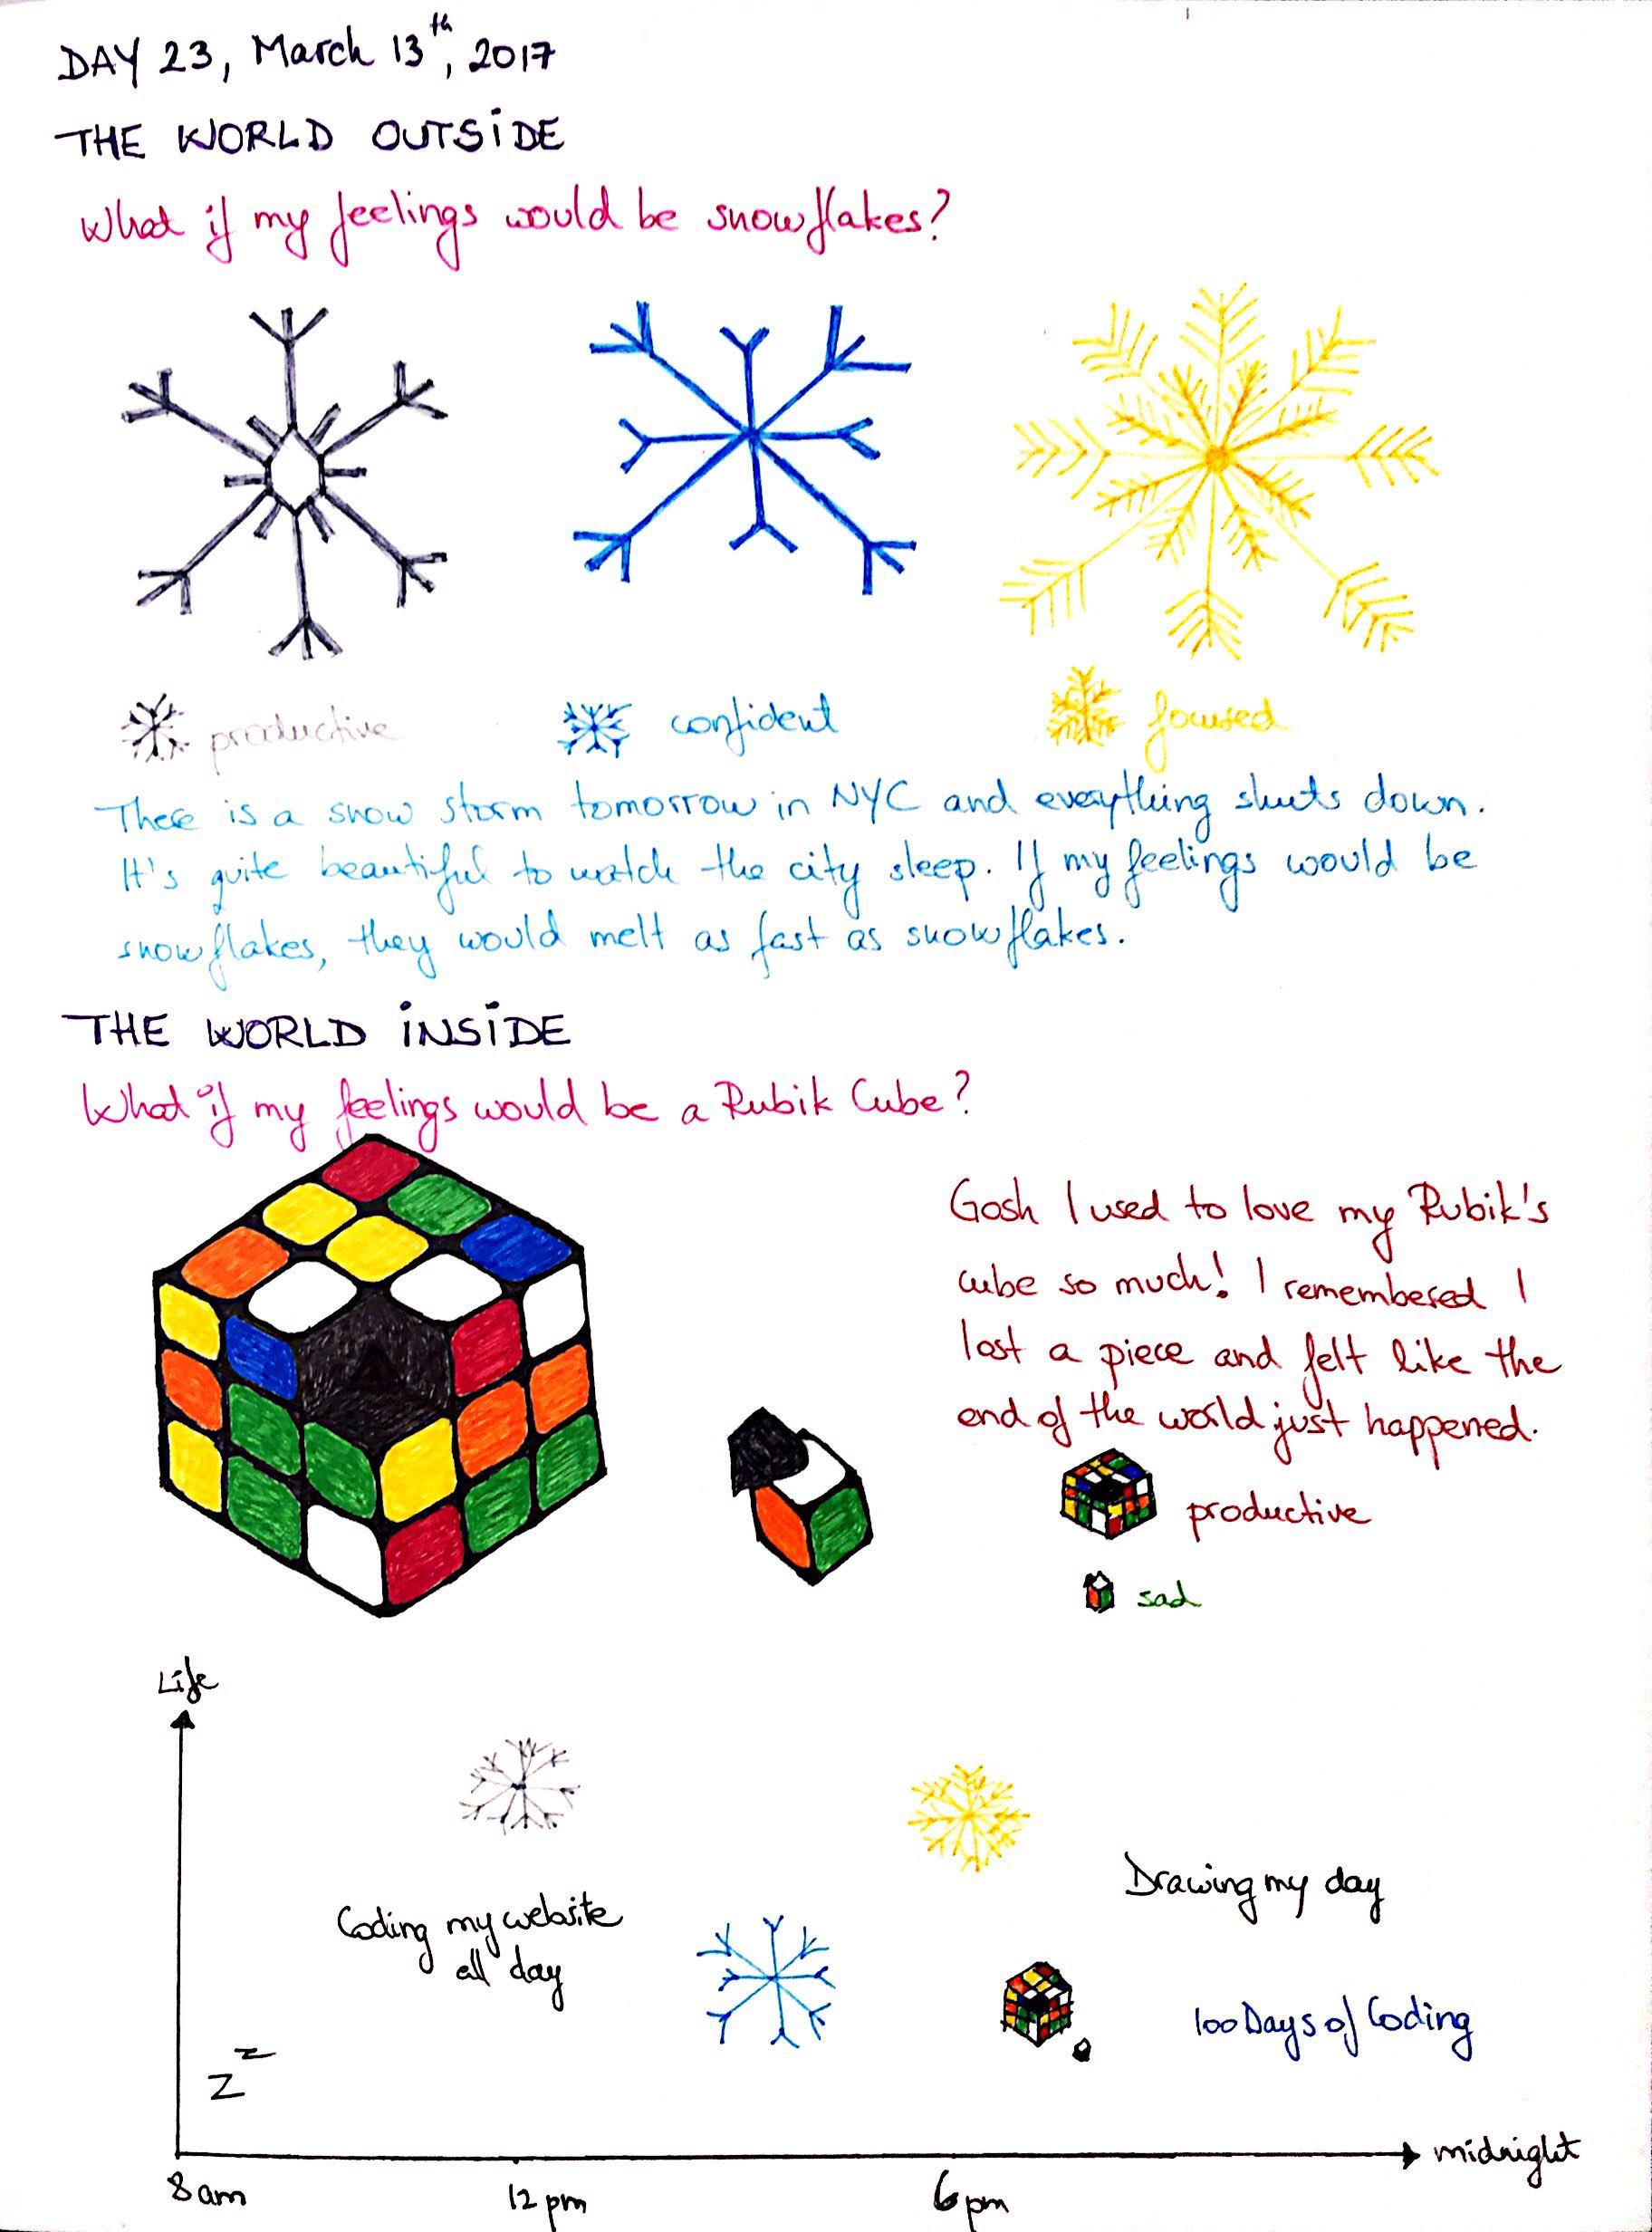 DAY 23, March 13th, 2017
THE WORLD OUTSiDE
What if my feelings would be snowflakes?
productive
confident
focused
There is a snow storm tomorrow in NYC and everything shuts down.
It's quite beautiful to watch the city sleep. If my feelings would be
snowflakes, they would melt as fast as snowflakes.
THE WORLD iNSiDE
What if my feelings would be a Rubik Cube?
Gosh I used to love my Rubik's
cube so much! I remembered I
lost a piece and felt like the
end of the world just happened.
productive
sad
Life
Coding my website
all day
Drawing my day
100 Days of Coding
Z z
midnight
8am 12pm 6pm